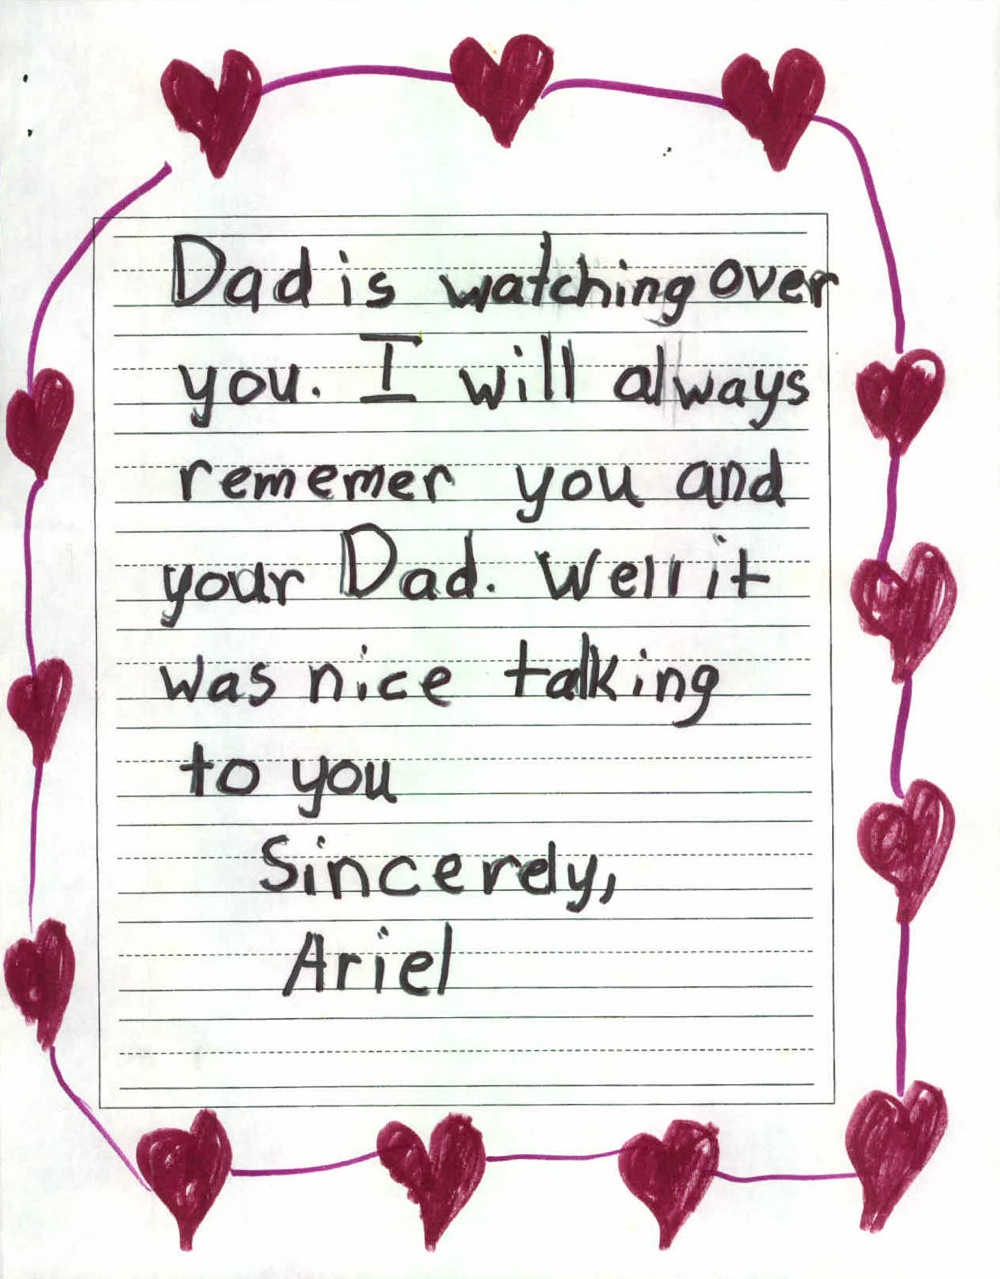 Dad is watching over
you. I will always
rememer you and
your Dad. Well it
was nice talking
to you
Sincerely,
Ariel